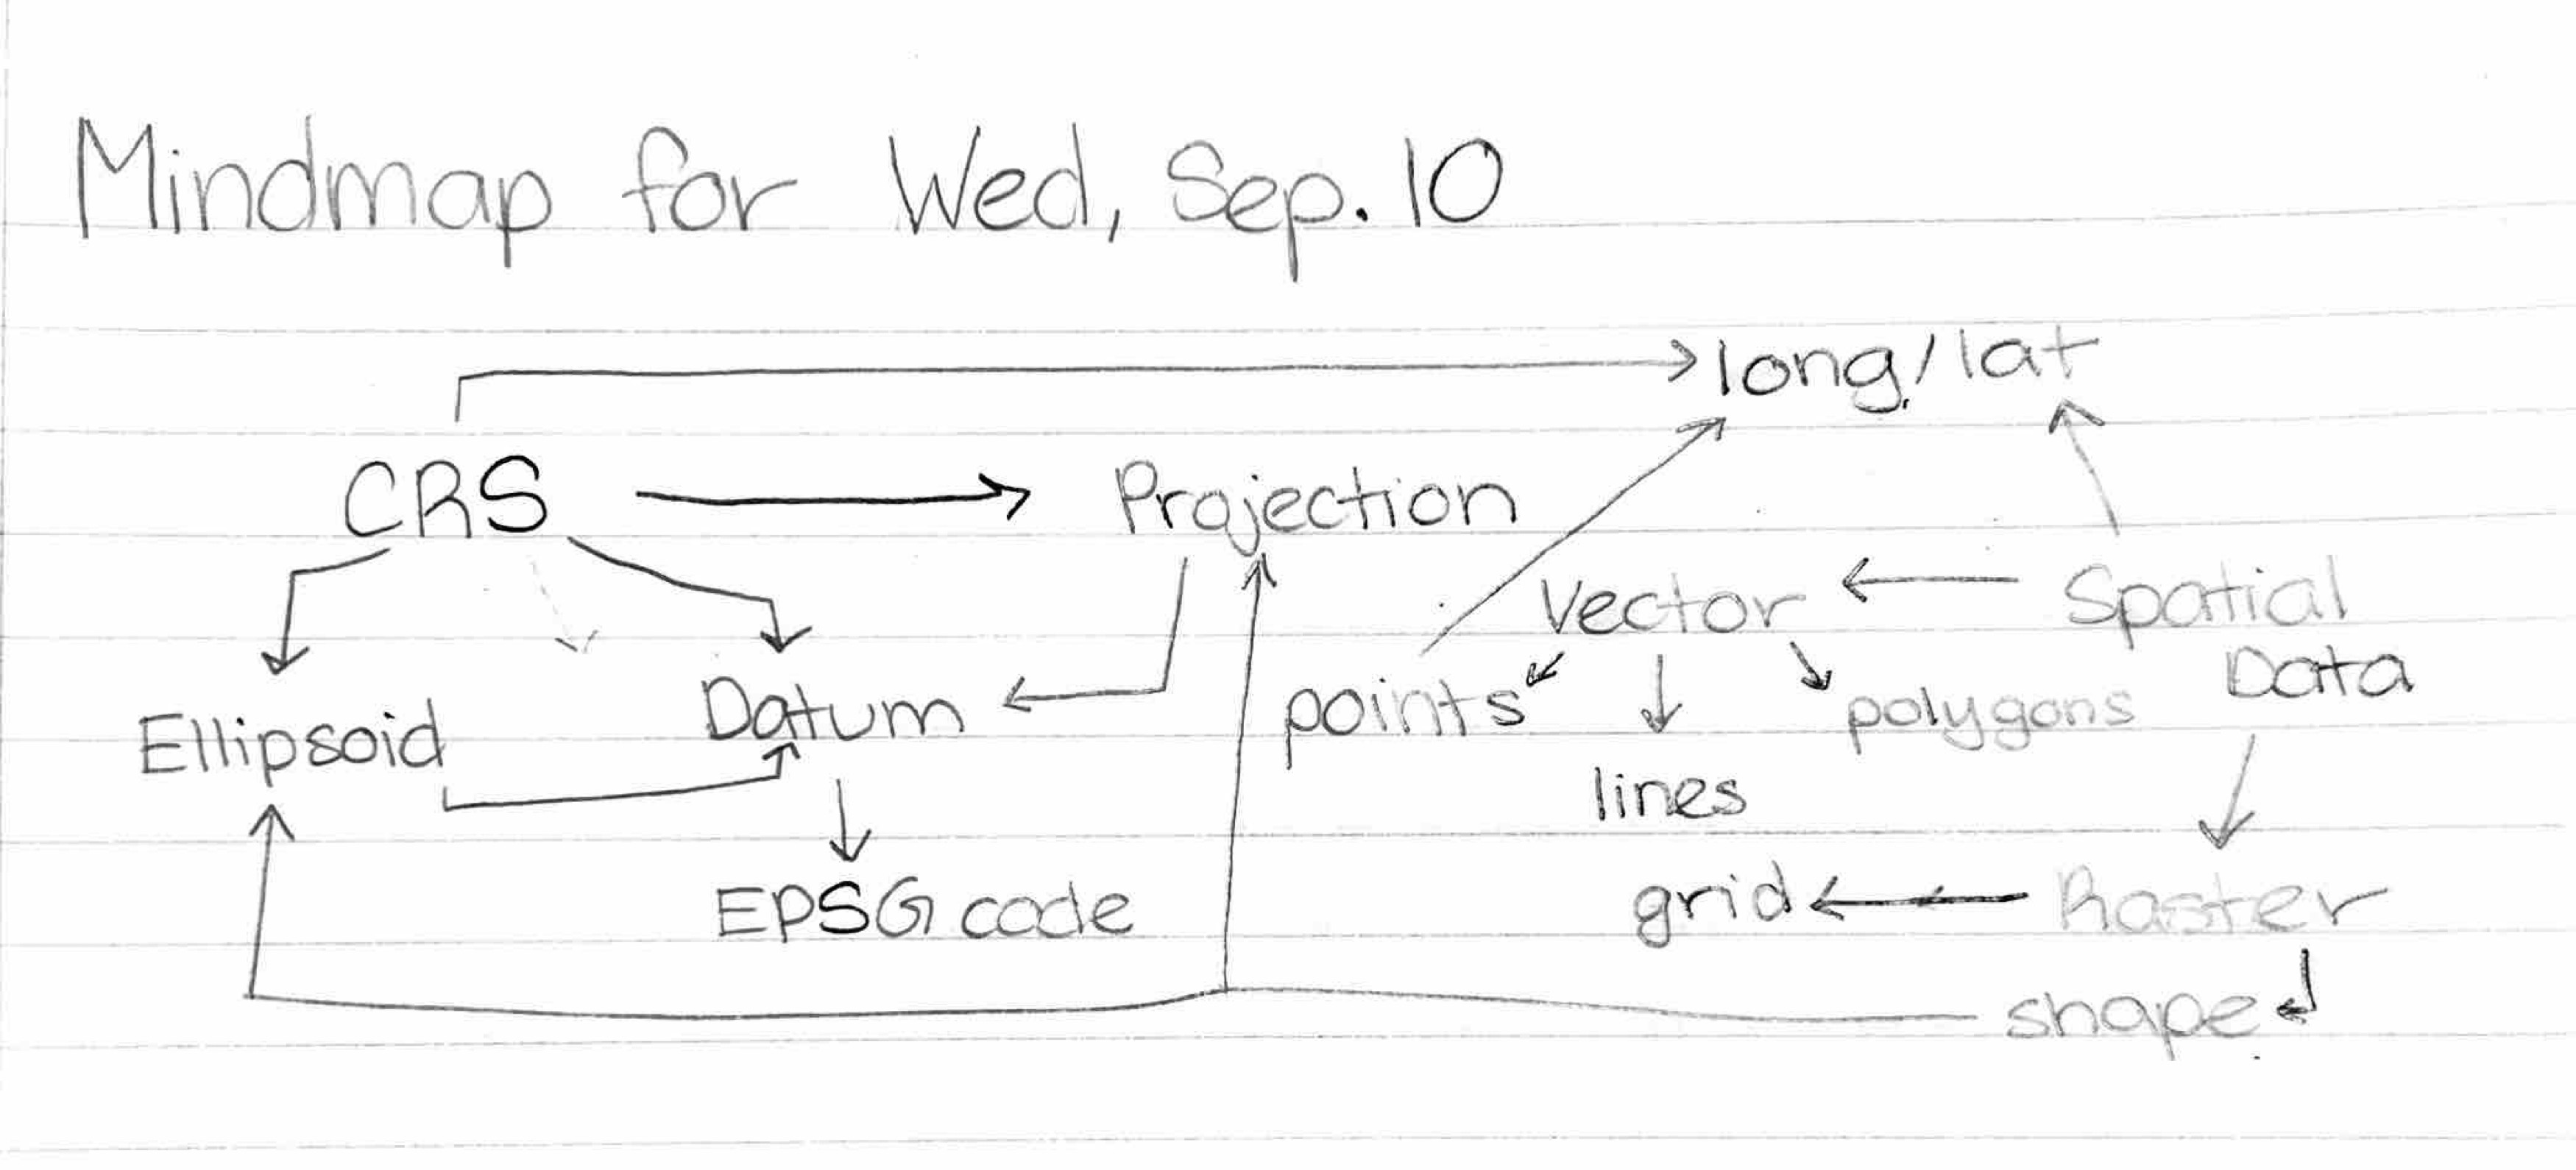 Mindmap for Wed, Sep. 10
long/lat
CRS
Projection
Vector
Spatial
Data
Ellipsoid
Datum
points
polygons
lines
EPSG code
grid
Raster
shape